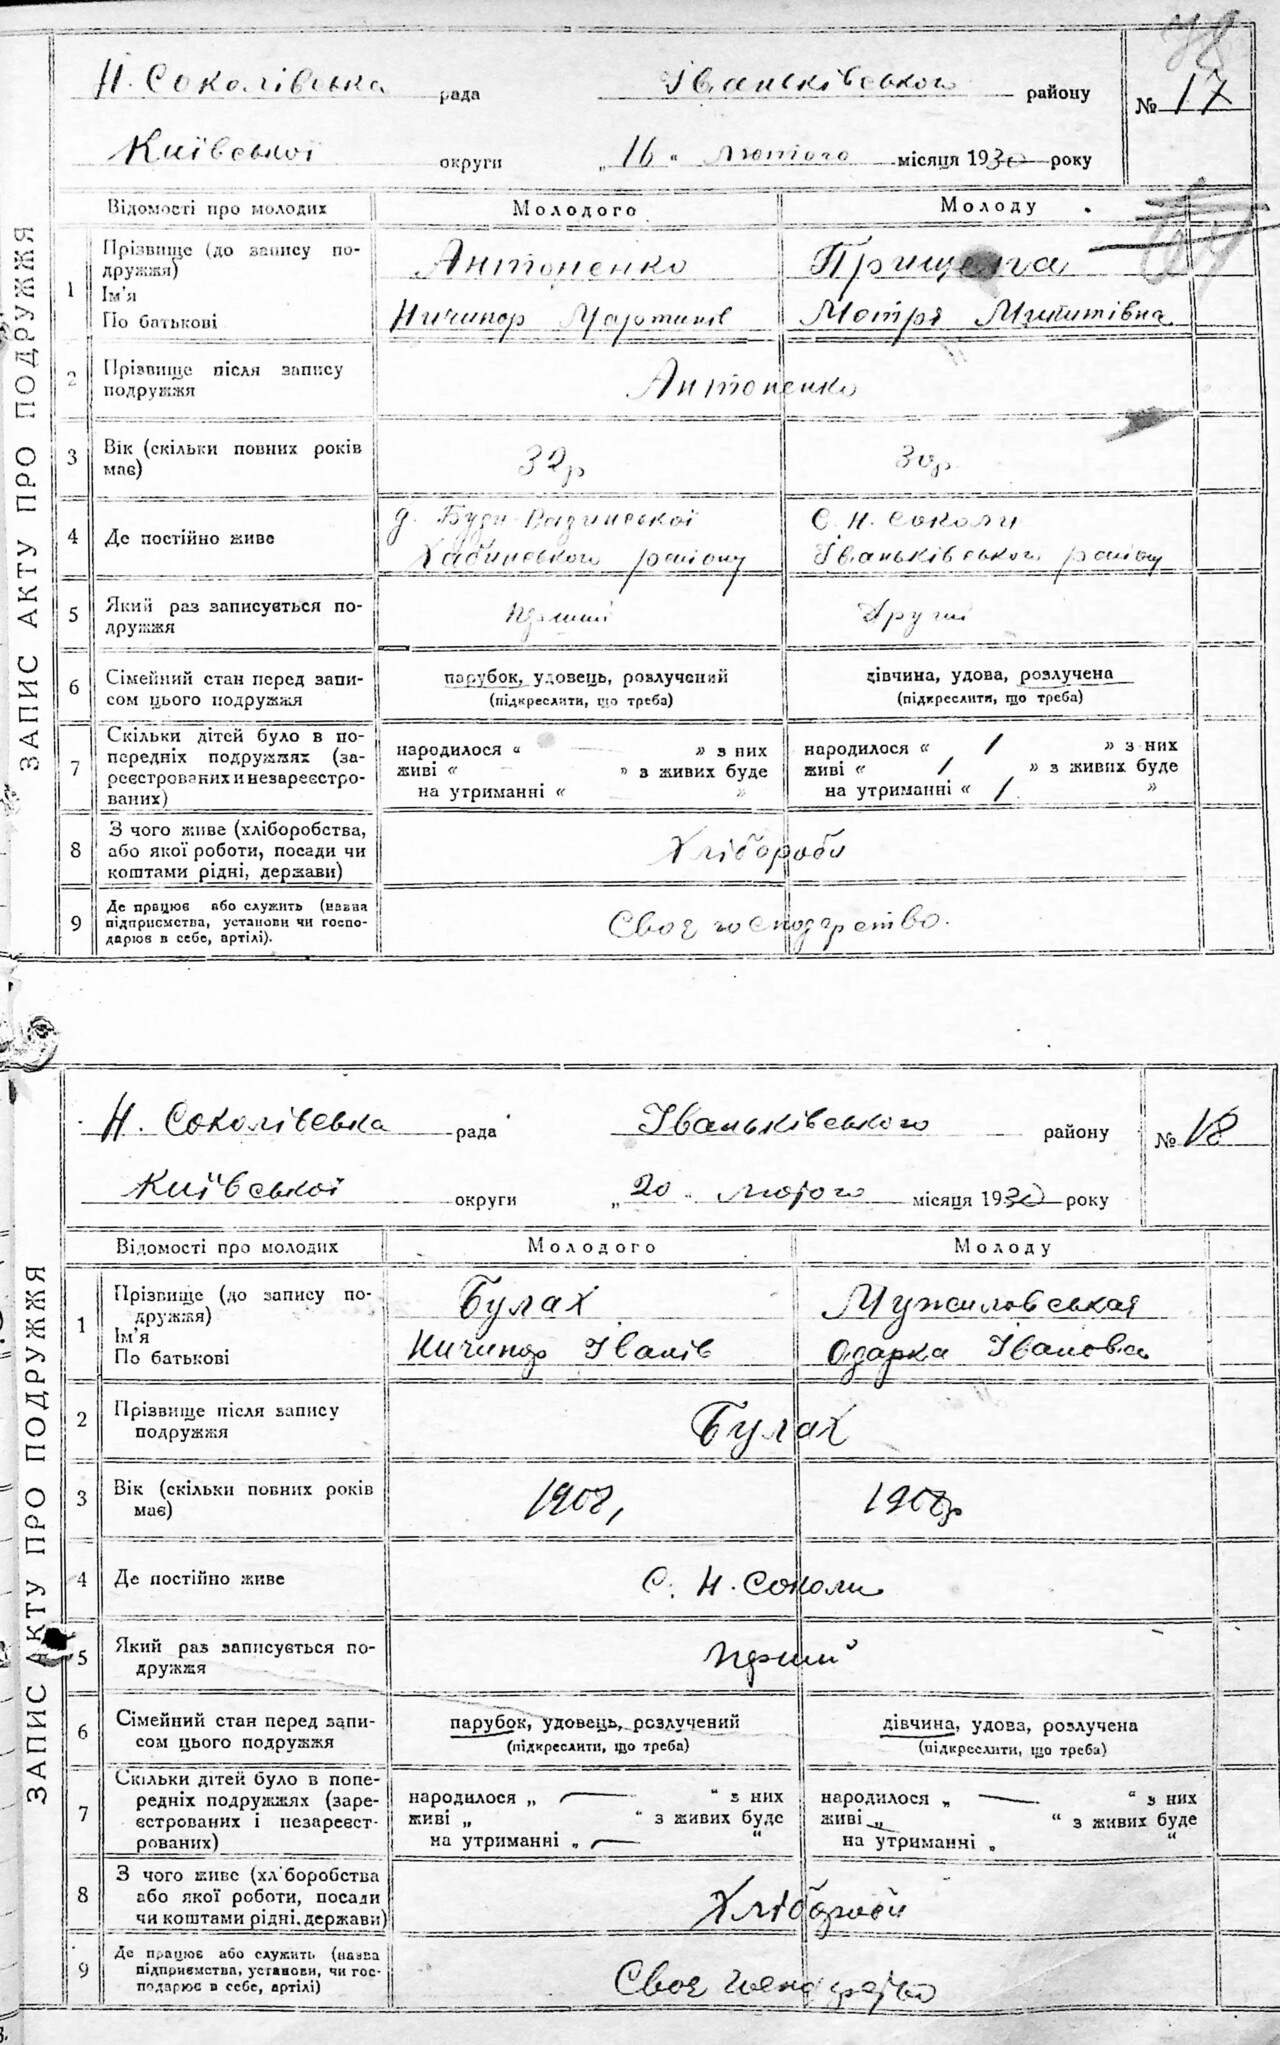 78
Н. Соколівська рада Іваньківського району № 17
Київської округи „ 16 “ лютого місяця 1930 року
ЗАПИС АКТУ ПРО ПОДРУЖЖЯ
Відомості про молодих Молодого Молоду
1 Прізвище (до запису по-
дружжя) Антоненко
Ім'я
По батькові Ничипор Мартинів Мотря Микитівна
2 Прізвище після запису
подружжя Антоненко
3 Вік (скільки повних років
має) 32р 30р
4 Де постійно живе д. Буди С. Н. Соколи
району Іваньківського району
5 Який раз записується по-
дружжя перший Другий
6 Сімейний стан перед запи-
сом цього подружжя парубок, удовець, розлучений дівчина, удова, розлучена
(підкреслити, що треба) (підкреслити, що треба)
7 Скільки дітей було в по-
передніх подружжях (за-
реєстрованих и незареєстро-
ваних) народилося “ — ” з них народилося “ 1 ” з них
живі “ — ” з живих буде живі “ 1 ” з живих буде
на утриманні “ ” на утриманні “ 1 ”
8 З чого живе (хліборобства,
або якої роботи, посади чи
коштами рідні, держави) Хлібороби
9 Де працює або служить (назва
підприємства, установи чи госпо-
дарює в себе, артілі). Своє господарство.
Н. Соколівська рада Іваньківського району № 18
Київської округи „ 20 “ лютого місяця 1930 року
ЗАПИС АКТУ ПРО ПОДРУЖЖЯ
Відомості про молодих Молодого Молоду
1 Прізвище (до запису по-
дружжя) Булах Мужиловськая
Ім'я
По батькові Ничипор Іванів Одарка Іванова
2 Прізвище після запису
подружжя Булах
3 Вік (скільки повних років
має) 1908, 1908р
4 Де постійно живе С. Н. Соколи
5 Який раз записується по-
дружжя перший
6 Сімейний стан перед запи-
сом цього подружжя парубок, удовець, розлучений дівчина, удова, розлучена
(підкреслити, що треба) (підкреслити, що треба)
7 Скільки дітей було в попе-
редніх подружжях (заре-
єстрованих і незареєст-
рованих) народилося „ — “ з них народилося „ — “ з них
живі „ “ з живих буде живі „ “ з живих буде
на утриманні „ — “ на утриманні „ “
8 З чого живе (хліборобства
або якої роботи, посади
чи коштами рідні, держави) Хлібороби
9 Де працює або служить (назва
підприємства, установи, чи гос-
подарює в себе, артілі) Своє